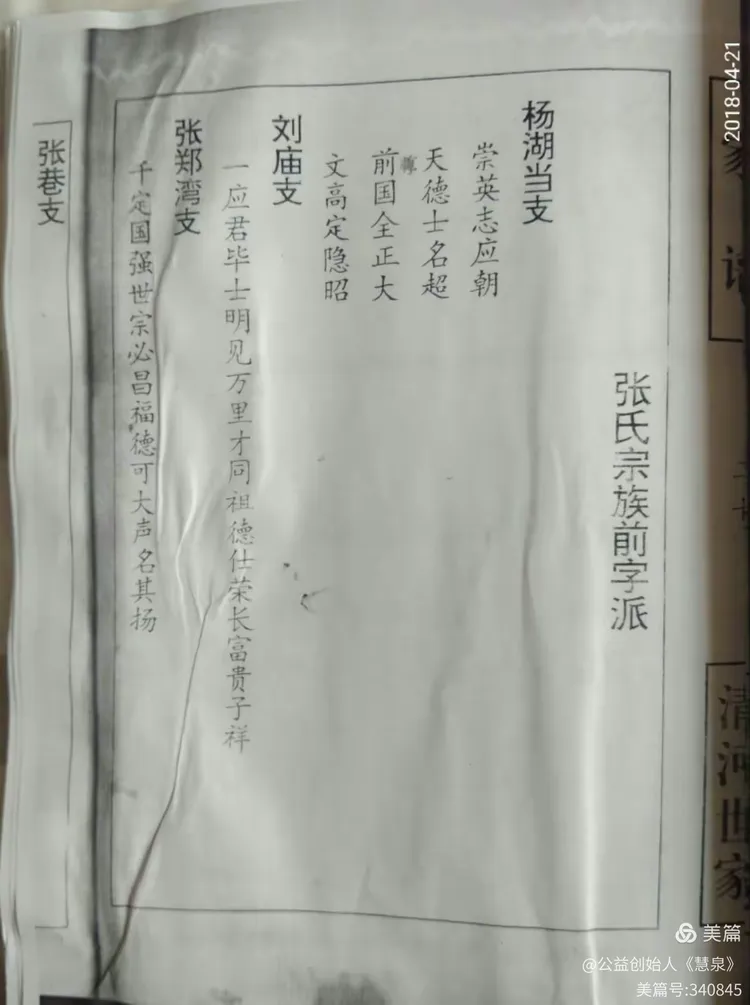 2018-04-21
张氏宗族前字派
杨湖当支
崇英志应朝
天德士名超
前国全正大
文高定隐昭
刘庙支
一应君毕士明见万里才同祖德仕荣长富贵子祥
张郑湾支
千定国强世宗必昌福德可大声名其扬
张巷支
清河世家
美篇
@公益创始人《慧泉》
美篇号:340845